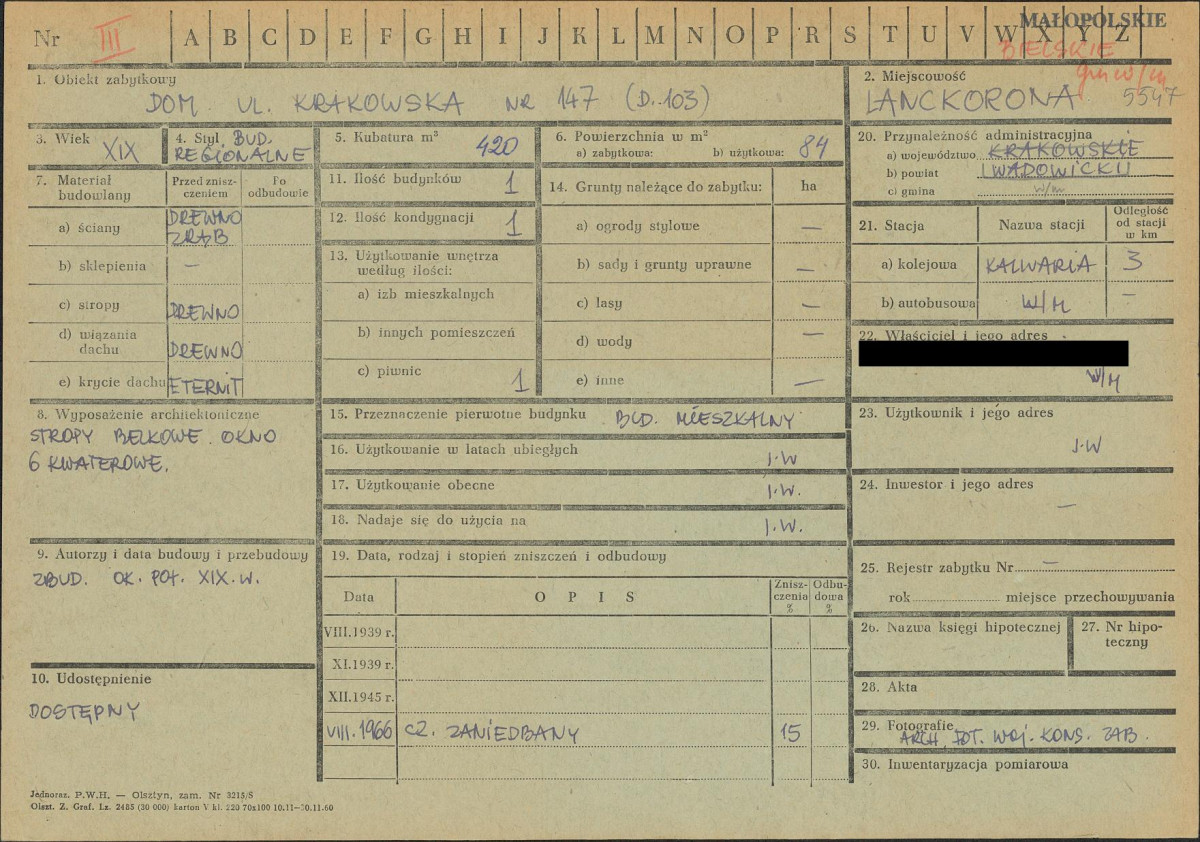 Nr III A B C D E F G H I J K L M N O P R S T U V W X Y Z
MAŁOPOLSKIE
BIELSKIE
gm w/m
1. Obiekt zabytkowy
DOM. UL. KRAKOWSKA NR 147 (D. 103)
2. Miejscowość
LANCKORONA 5547
3. Wiek
XIX
4. Styl BUD.
REGIONALNE
5. Kubatura m³
420
6. Powierzchnia w m²
a) zabytkowa: b) użytkowa: 84
7. Materiał budowlany
Przed znisz-
czeniem
Po
odbudowie
a) ściany DREWNO
ZRĄB
b) sklepienia –
c) stropy DREWNO
d) wiązania
dachu DREWNO
e) krycie dachu ETERNIT
8. Wyposażenie architektoniczne
STROPY BELKOWE. OKNO
6 KWATEROWE.
9. Autorzy i data budowy i przebudowy
ZBUD. OK. POŁ. XIX. W.
10. Udostępnienie
DOSTĘPNY
11. Ilość budynków 1
12. Ilość kondygnacji 1
13. Użytkowanie wnętrza
według ilości:
a) izb mieszkalnych
b) innych pomieszczeń
c) piwnic 1
14. Grunty należące do zabytku: ha
a) ogrody stylowe –
b) sady i grunty uprawne –
c) lasy –
d) wody –
e) inne –
15. Przeznaczenie pierwotne budynku BUD. MIESZKALNY
16. Użytkowanie w latach ubiegłych J.W
17. Użytkowanie obecne J.W.
18. Nadaje się do użycia na J.W.
19. Data, rodzaj i stopień zniszczeń i odbudowy
Data OPIS
Znisz-
czenia
%
Odbu-
dowa
%
VIII.1939 r.
XI.1939 r.
XII.1945 r.
VIII.1966 CZ. ZANIEDBANY 15
20. Przynależność administracyjna
a) województwo KRAKOWSKIE
b) powiat WADOWICKI
c) gmina w/m
21. Stacja Nazwa stacji
Odległość
od stacji
w km
a) kolejowa KALWARIA 3
b) autobusowa W/M –
22. Właściciel i jego adres
W/M
23. Użytkownik i jego adres
J.W
24. Inwestor i jego adres
–
25. Rejestr zabytku Nr –
rok miejsce przechowywania
26. Nazwa księgi hipotecznej
27. Nr hipo-
teczny
28. Akta
29. Fotografie
ARCH. FOT. WOJ. KONS. ZAB.
30. Inwentaryzacja pomiarowa
Jednoraz. P.W.H. — Olsztyn, zam. Nr 3215/S
Olszt. Z. Graf. Lz. 2485 (30 000) karton V kl. 220 70x100 10.11—30.11.60